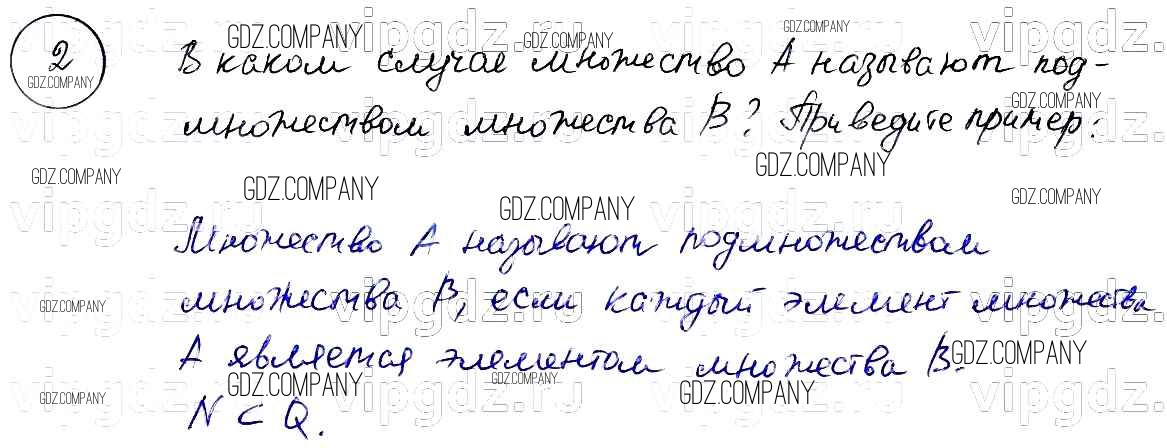 2
В каком случае множество А называют под-
множеством множества В? Приведите пример.
Множество А называют подмножеством
множества В, если каждый элемент множества
А является элементом множества В.
N ⊂ Q.
GDZ.COMPANY
vipgdz.ru